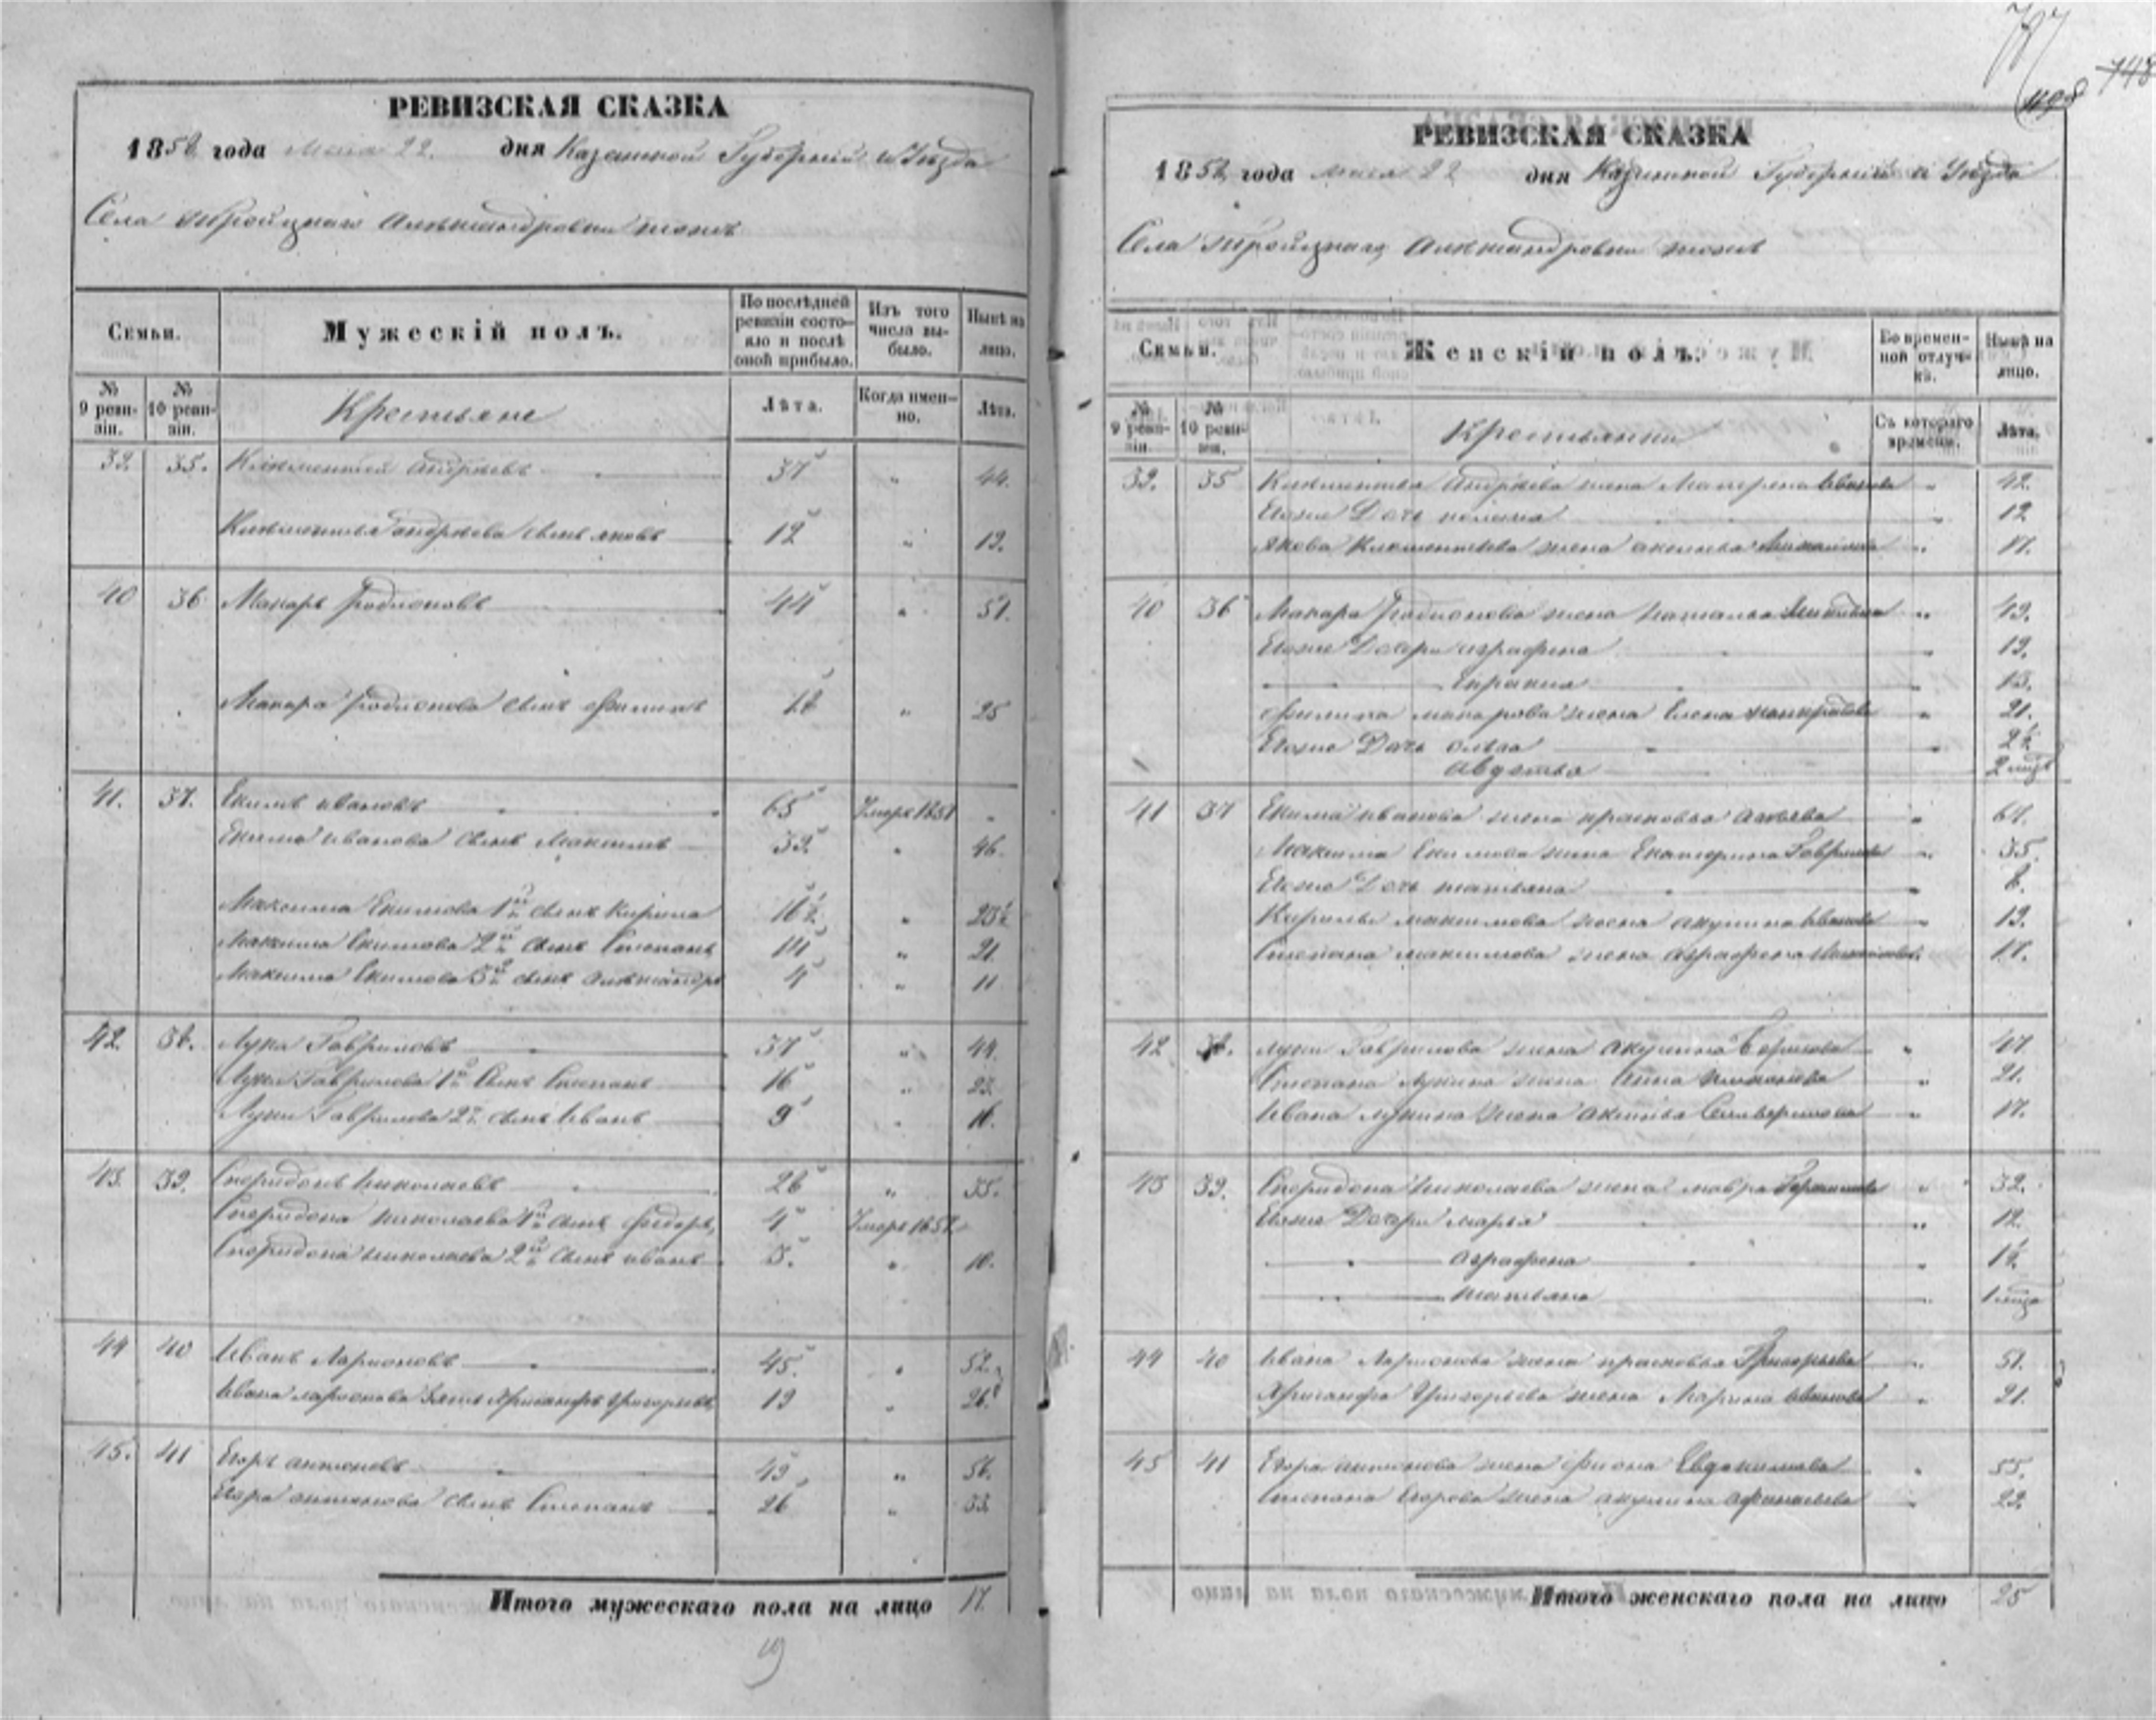 РЕВИЗСКАЯ СКАЗКА
1858 года мая 22. дня Казанской Губерніи и Уѣзда
Села Троицкаго Александровки тожъ
Семьи.
Мужескій полъ.
По послѣдней ревизіи состояло и послѣ оной прибыло.
Изъ того числа выбыло.
Нынѣ на лицо.
№ 9 ревизіи.
№ 10 ревизіи.
Крестьяне
Лѣта.
Когда именно.
Лѣта.
39. 35. Климентій Андреевъ 37 " 44.
Климентья Андреева сынъ Яковъ 12 " 19.
40 36 Макаръ Родионовъ 44 " 51.
Макара Родионова сынъ Филипъ 18 " 25
41. 37. Екимъ Ивановъ 65 Умеръ 1857 "
Екима Иванова сынъ Максимъ 39. " 46.
Максима Екимова 1й сынъ Кирила 16½ " 23½
Максима Екимова 2й сынъ Степанъ 14 " 21
Максима Екимова 3й сынъ Александръ 4 " 11
42. 38. Лука Гавриловъ 37 " 44.
Луки Гаврилова 1й сынъ Степанъ 16 " 23.
Луки Гаврилова 2й сынъ Иванъ 9 " 16.
43. 39. Спиридонъ Николаевъ 26 " 33.
Спиридона Николаева 1й сынъ Федоръ, 4 Умеръ
Спиридона Николаева 2й сынъ Иванъ 3. " 10.
44 40 Иванъ Ларионовъ 45. " 52.
Ивана Ларионова зять Хрисанфъ Григорьевъ, 19 " 26.
45. 41 Егоръ Антоновъ 49 " 56.
Егора Антонова сынъ Степанъ 26 " 33
Итого мужескаго пола на лицо 17.
19
РЕВИЗСКАЯ СКАЗКА
1858 года мая 22 дня Казанской Губерніи и Уѣзда
Села Троицкаго Александровки тожъ
Семьи.
Женскій полъ.
Во временной отлучкѣ.
Нынѣ на лицо.
№ 9 ревизіи.
№ 10 ревизіи.
Крестьянки
Съ котораго времени.
Лѣта.
39. 35 Климентья Андреева жена Матрена Иванова " 42.
Ихъ Дочь " 12
Якова Климентьева жена Акулина " 17.
40 36 Макара Родионова жена Наталья " 49.
Ихъ Дочери Аграфена " 19.
" 15.
Филипа Макарова жена Елена " 21.
Ихъ Дочь " 2½
Авдотья 2 мца
41 37 Екима Иванова жена Прасковья " 67.
Максима Екимова жена Екатерина Гаврилова " 35.
Ихъ Дочь Татьяна " 8.
Кирилы Максимова жена Акулина Иванова " 19.
Степана Максимова жена Аграфена 17.
42 38. Луки Гаврилова жена Акулина " 47
Степана Лукина жена Анна " 21.
Ивана Лукина жена Аксинья " 17.
43 39. Спиридона Николаева жена Мавра " 32.
Ихъ Дочери Марья " 12
" Аграфена " 1½
" Татьяна " 1 мца
44 40 Ивана Ларионова жена Прасковья Григорьева " 51.
Хрисанфа Григорьева жена Марина Иванова " 21.
45 41 Егора Антонова жена Евдокимова " 55.
Степана Егорова жена Акулина Афанасьева " 22.
Итого женскаго пола на лицо 25